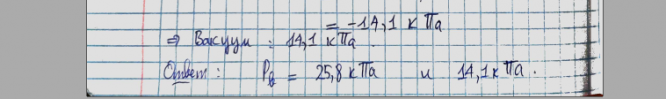 = -14,1 кПа
⇒ Вакуум : 14,1 кПа.
Ответ : Pв = 25,8 кПа и 14,1 кПа.